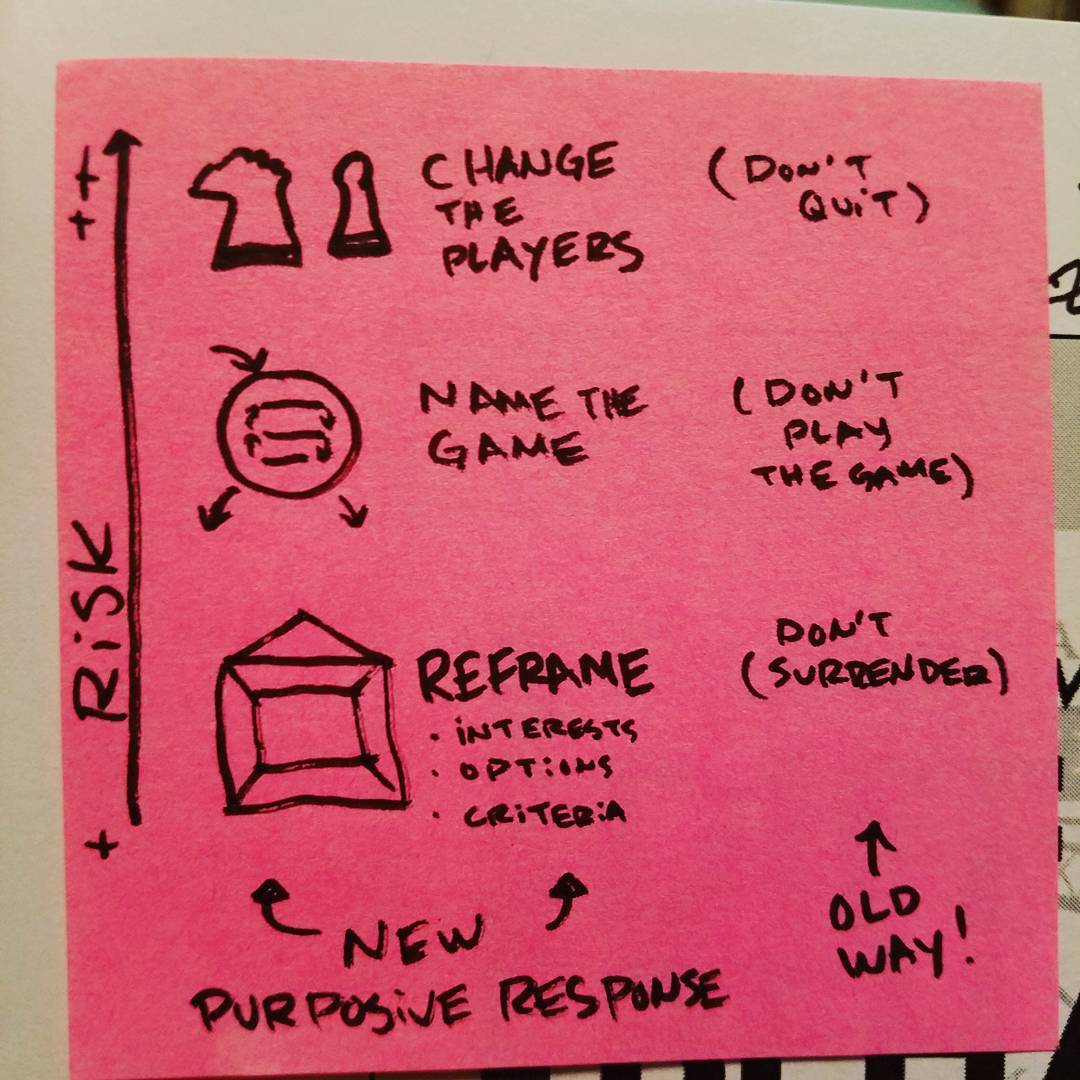 ++
CHANGE
THE
PLAYERS
(DON'T
QUIT)
NAME THE
GAME
(DON'T
PLAY
THE GAME)
RISK
REFRAME
· INTERESTS
· OPTIONS
· CRITERIA
DON'T
(SURRENDER)
+
NEW
PURPOSIVE RESPONSE
OLD
WAY!